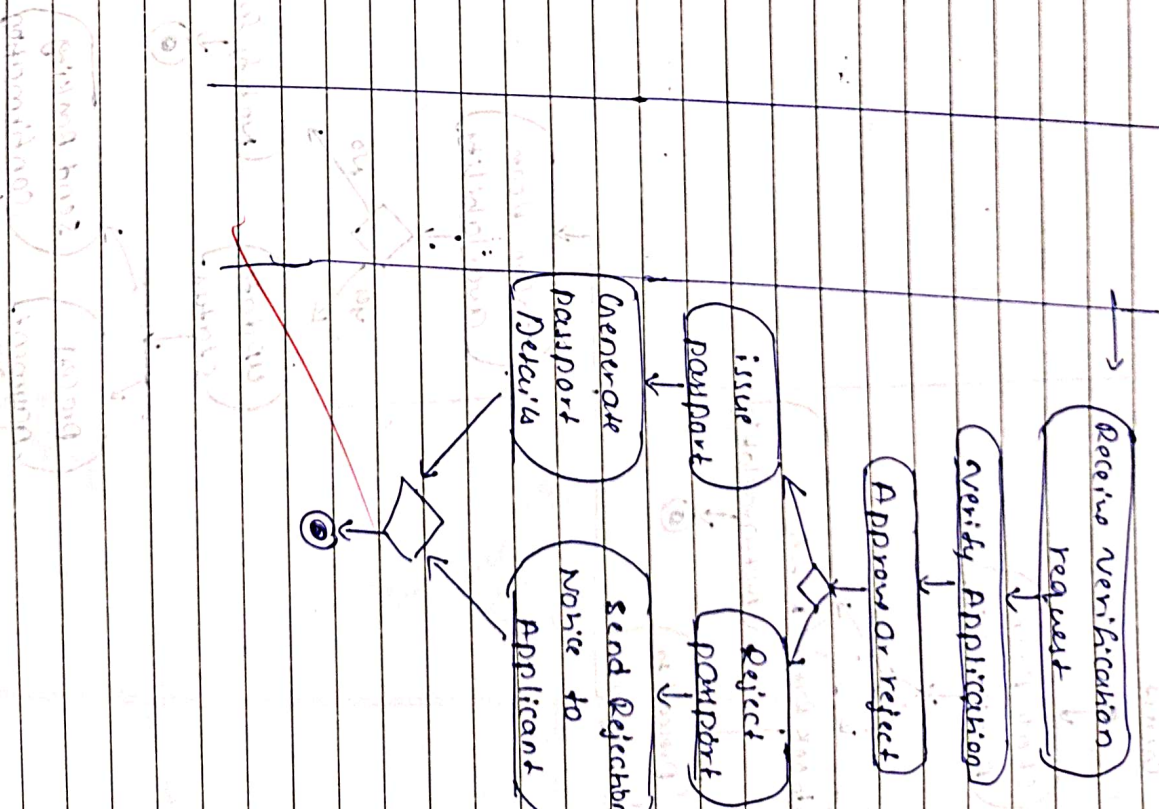 Receive verification
request
verify Application
Approve or reject
issue
passport
Reject
passport
Generate
passport
Details
Send Rejection
Notice to
Applicant